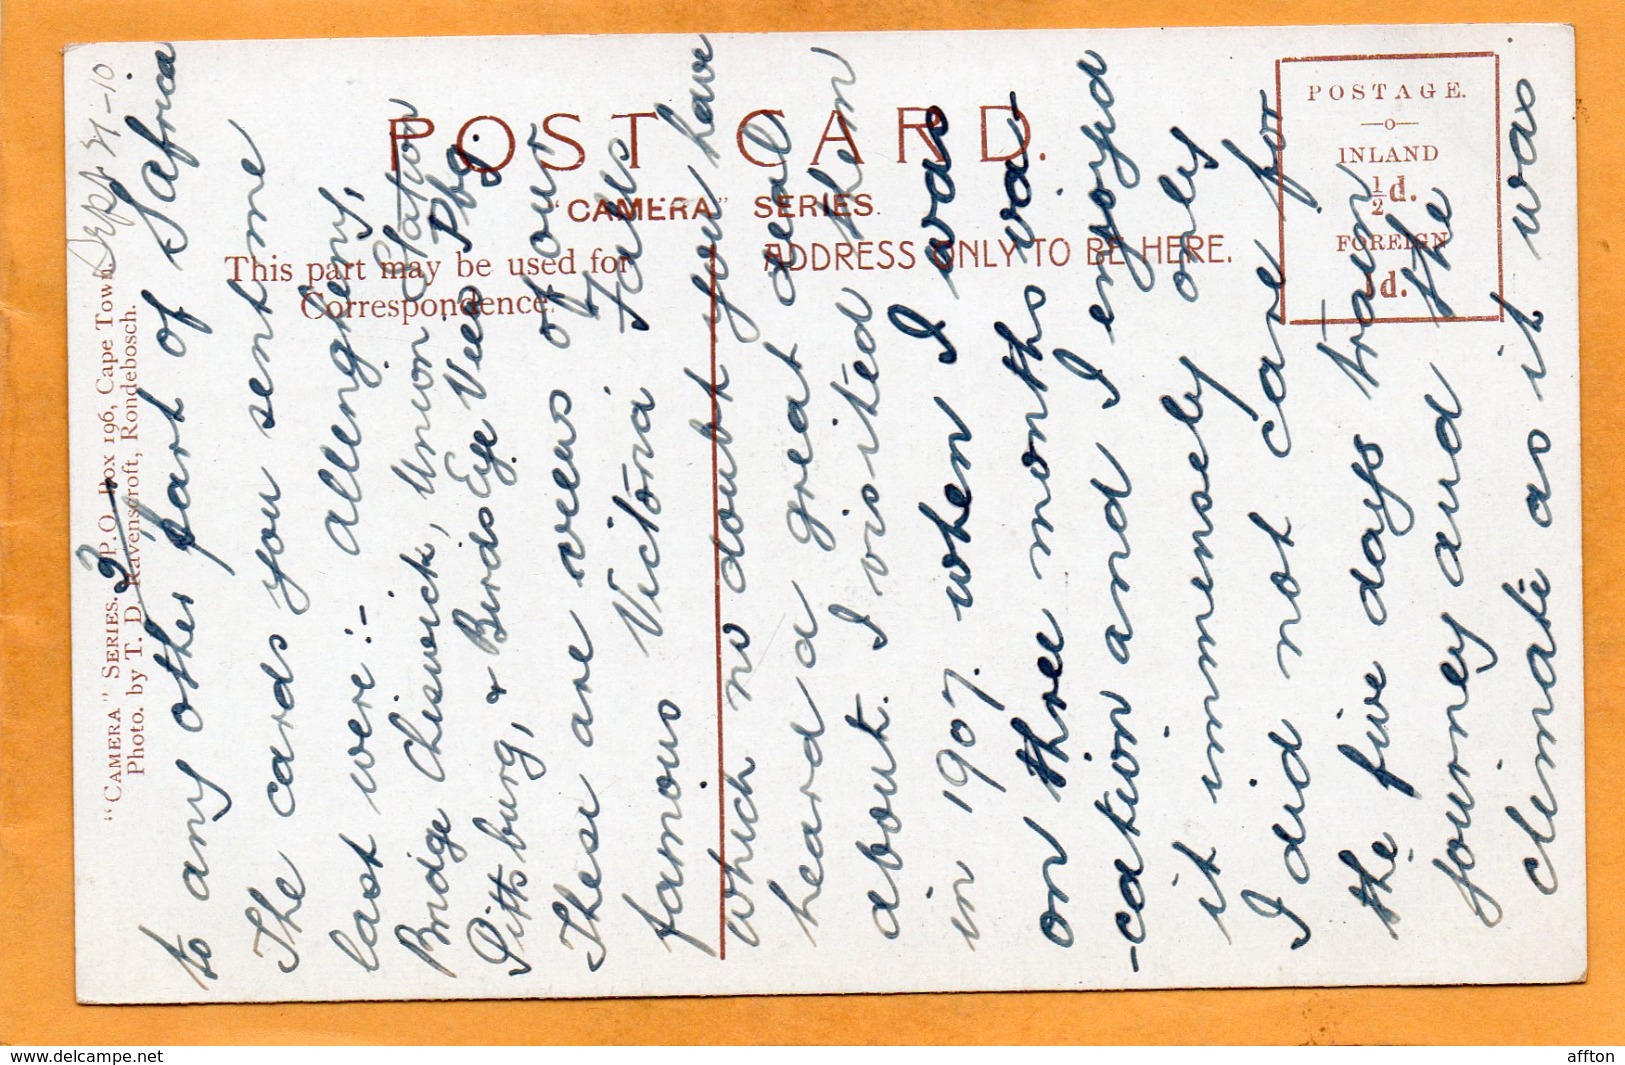 POST CARD.
"CAMERA" SERIES.
This part may be used for
Correspondence.
ADDRESS ONLY TO BE HERE.
POSTAGE.
INLAND
½d.
FOREIGN
d.
"CAMERA" SERIES. P.O. Box 196, Cape Town.
Photo. by T. D. Ravenscroft, Rondebosch.
Sept -10
3
to any other part of S africa
The cards you sent me
last were:- Allengheny,
Bridge Chiswick, Union Station
Pittsburg, & Birds Eye View Pbg.
These are views of our
famous Victoria Falls
which no doubt you have
heard a great deal
about. I visited them
in 1907. when I was
on three months va-
-cation and I enjoyed
it immensely only
I did not care for
the five days train
journey and the
climate as it was
delcampe.net
affton